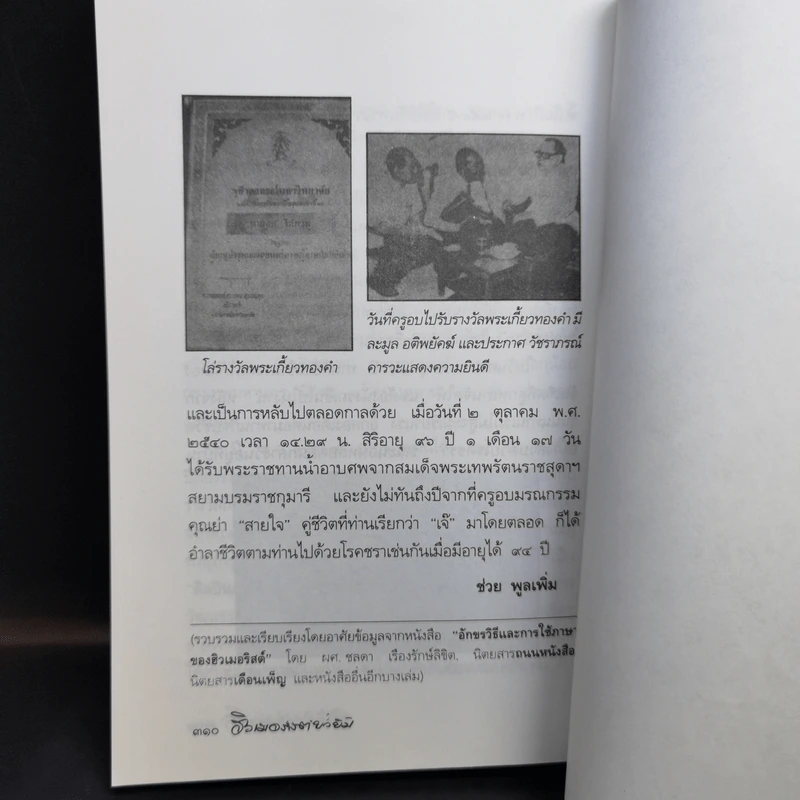 โล่รางวัลพระเกี้ยวทองคำ
วันที่ครูอบไปรับรางวัลพระเกี้ยวทองคำ มี
ละมูล อติพยัคฆ์ และประกาศ วัชราภรณ์
คารวะแสดงความยินดี
และเป็นการหลับไปตลอดกาลด้วย เมื่อวันที่ ๒ ตุลาคม พ.ศ.
๒๕๔๐ เวลา ๑๔.๒๙ น. สิริอายุ ๙๖ ปี ๑ เดือน ๑๗ วัน
ได้รับพระราชทานน้ำอาบศพจากสมเด็จพระเทพรัตนราชสุดาฯ
สยามบรมราชกุมารี และยังไม่ทันถึงปีจากที่ครูอบมรณกรรม
คุณย่า "สายใจ" คู่ชีวิตที่ท่านเรียกว่า "เจ๊" มาโดยตลอด ก็ได้
อำลาชีวิตตามท่านไปด้วยโรคชราเช่นกันเมื่อมีอายุได้ ๙๔ ปี
ช่วย พูลเพิ่ม
(รวบรวมและเรียบเรียงโดยอาศัยข้อมูลจากหนังสือ "อักขรวิธีและการใช้ภาษา
ของฮิวเมอริสต์" โดย ผศ. ชลดา เรืองรักษ์ลิขิต, นิตยสารถนนหนังสือ,
นิตยสารเดือนเพ็ญ และหนังสืออื่นอีกบางเล่ม)
๓๑๐